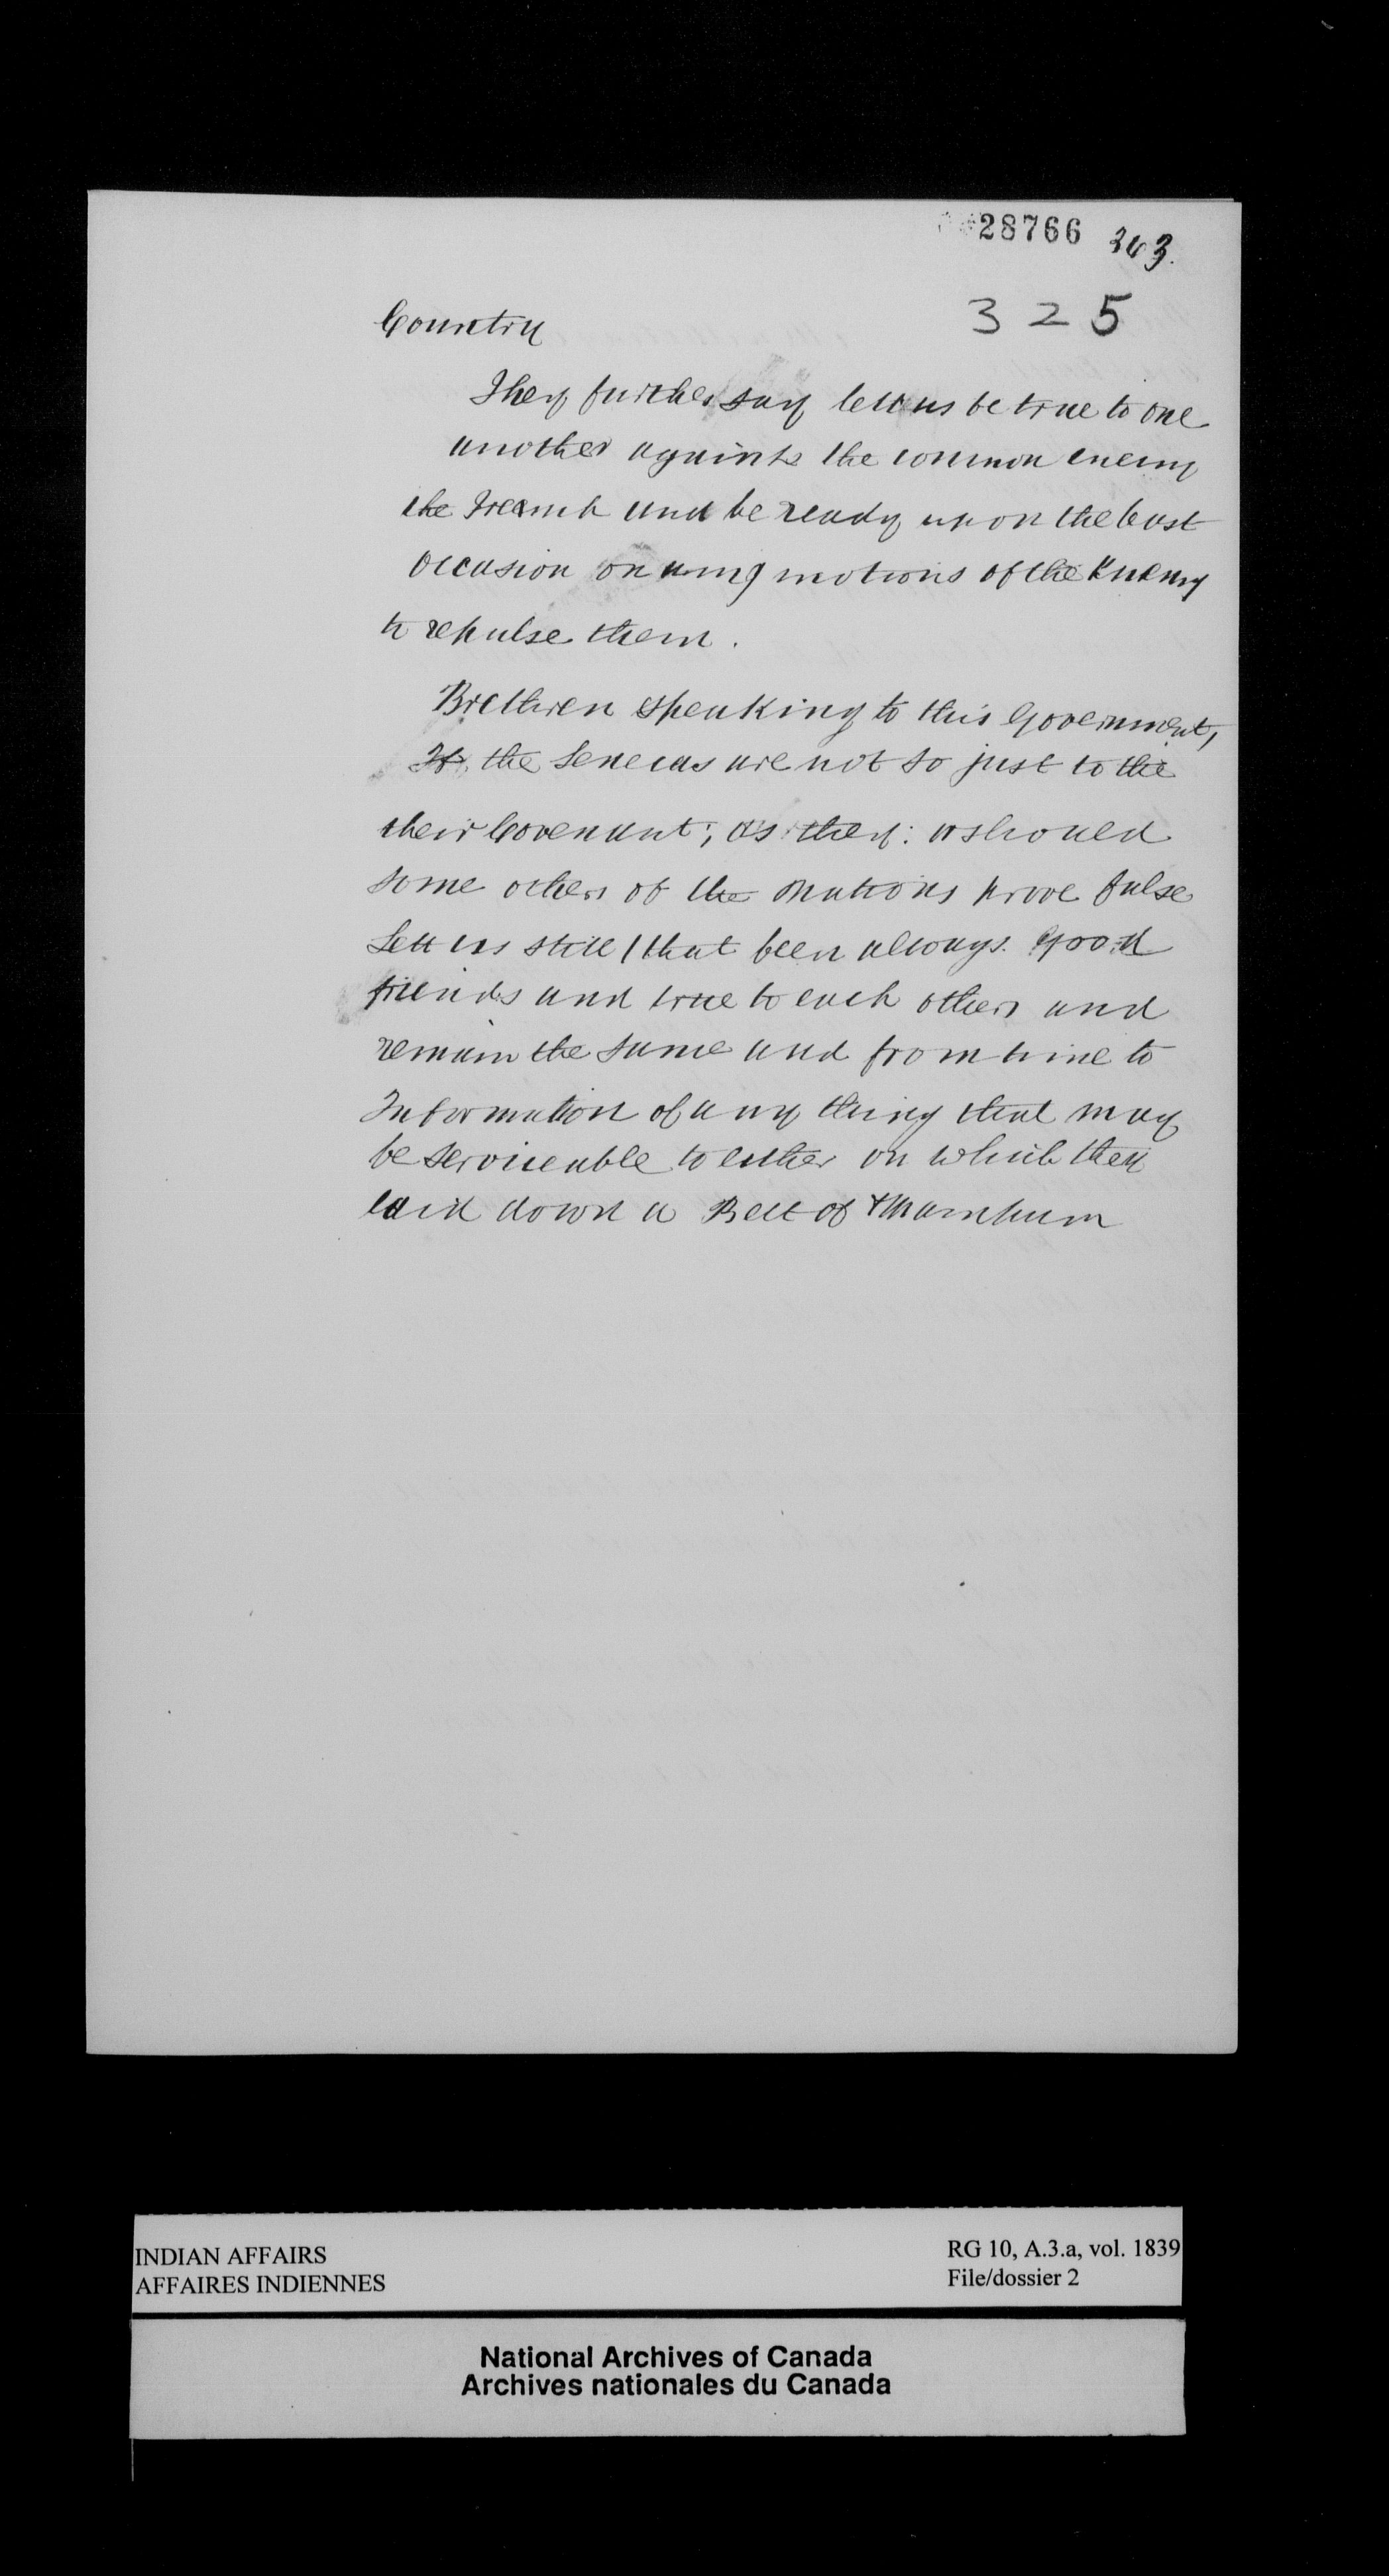 28766 363.
325
Country
They further say lett us be true to one
another againts the common enemy
the French and be ready upon the least
occasion on any motions of the Enemy
to repulse them.
Brethren speaking to this Government,
If the Senecas are not so just to the
their Covenant; as they: should
some others of the nations prove false
Lett us still that been always good
friends and true to each others and
remain the same and from time to
Information of any thing that may
be serviceable to either on which they
laid down a Belt of Wampum
INDIAN AFFAIRS
AFFAIRES INDIENNES
RG 10, A.3.a, vol. 1839
File/dossier 2
National Archives of Canada
Archives nationales du Canada